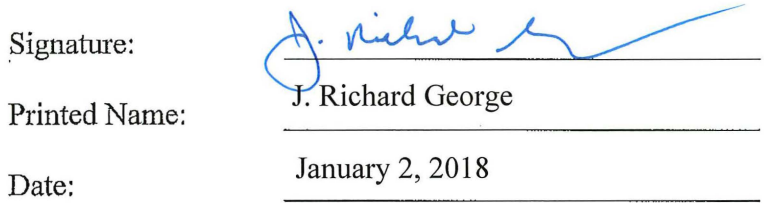 Signature: J. Richard
Printed Name: J. Richard George
Date: January 2, 2018